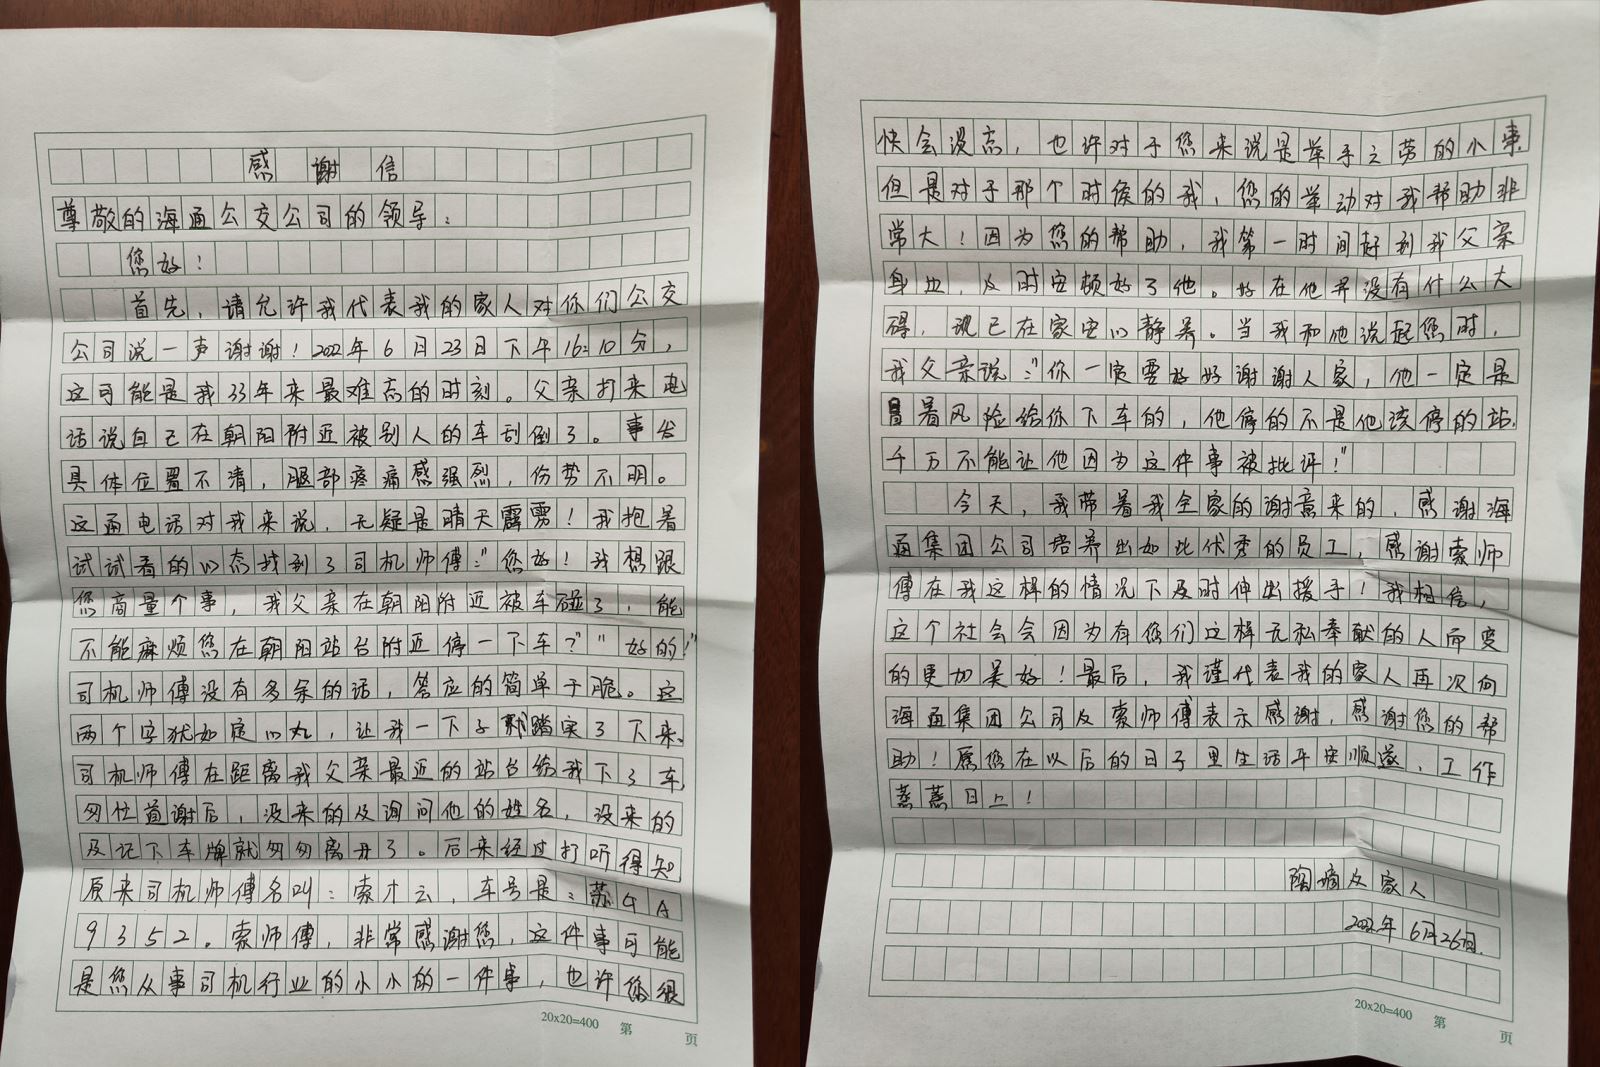 感谢信
尊敬的海通公交公司的领导：
您好！
首先，请允许我代表我的家人对你们公交
公司说一声谢谢！2022年6月23日下午16:10分，
这可能是我33年来最难忘的时刻。父亲打来电
话说自己在朝阳附近被别人的车刮倒了。事发
具体位置不清，腿部疼痛感强烈，伤势不明。
这通电话对我来说，无疑是晴天霹雳！我抱着
试试看的心态找到了司机师傅：“您好！我想跟
您商量个事，我父亲在朝阳附近被车碰了，能
不能麻烦您在朝阳站台附近停一下车？”“好的！”
司机师傅没有多余的话，答应的简单干脆。这
两个字犹如定心丸，让我一下子就踏实了下来。
司机师傅在距离我父亲最近的站台给我下了车，
匆忙道谢后，没来的及询问他的姓名，没来的
及记下车牌就匆匆离开了。后来经过打听得知
原来司机师傅名叫：索才云，车号是：苏GA
9352。索师傅，非常感谢您，这件事可能
是您从事司机行业的小小的一件事，也许您很
20x20=400 第 页
快会没忘，也许对于您来说是举手之劳的小事，
但是对于那个时候的我，您的举动对我帮助非
常大！因为您的帮助，我第一时间赶到我父亲
身边，及时安顿好了他。好在他并没有什么大
碍，现已在家安心静养。当我和他说起您时，
我父亲说：“你一定要好好谢谢人家，他一定是
冒着风险给你下车的，他停的不是他该停的站，
千万不能让他因为这件事被批评！”
今天，我带着我全家的谢意来的，感谢海
通集团公司培养出如此优秀的员工，感谢索师
傅在我这样的情况下及时伸出援手！我相信，
这个社会会因为有您们这样无私奉献的人而变
的更加美好！最后，我谨代表我的家人再次向
海通集团公司及索师傅表示感谢，感谢您的帮
助！愿您在以后的日子里生活平安顺遂，工作
蒸蒸日上！
陶嫡及家人
2022年6月26日
20x20=400 第 页